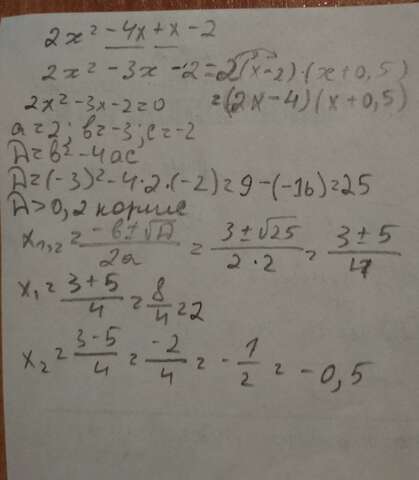 2x² - 4x + x - 2
2x² - 3x - 2 = 2(x-2)·(x+0,5)
= (2x-4)(x+0,5)
2x² - 3x - 2 = 0
a = 2; в = -3; c = -2
Д = в² - 4ac
Д = (-3)² - 4·2·(-2) = 9 - (-16) = 25
Д > 0, 2 корня
x₁,₂ = (-в ± √Д)/(2a) = (3 ± √25)/(2·2) = (3 ± 5)/4
x₁ = (3+5)/4 = 8/4 = 2
x₂ = (3-5)/4 = -2/4 = -1/2 = -0,5